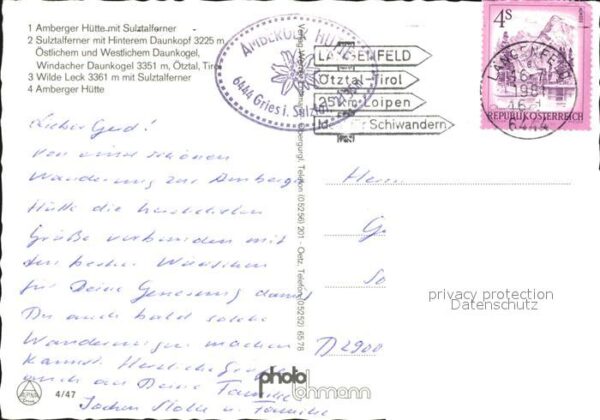 1 Amberger Hütte mit Sulztalferner
2 Sulztalferner mit Hinterem Daunkopf 3225 m,
Östlichem und Westlichem Daunkogel,
Windacher Daunkogel 3351 m, Ötztal, Tirol
3 Wilde Leck 3361 m mit Sulztalferner
4 Amberger Hütte
AMBERGER HÜTTE
6444 Gries i. Sulztal
LÄNGENFELD
Ötztal-Tirol
25km Loipen
Schiwandern
4S
REPUBLIK ÖSTERREICH
LÄNGENFELD
6444
Lieber Gerd!
Von einer schönen
Wanderung zur Amberger
Hütte die herzlichsten
Grüße verbunden mit
den besten Wünschen
für Deine Genesung damit
Du auch bald solche
Wanderungen machen
kannst. Herzliche Grüße
auch an Deine Familie
Jochen u. Familie
Telefon (05256) 201 - Oetz, Telefon (05252) 6578
Herrn
G
So
D 2900
privacy protection
Datenschutz
4/47
photo
lohmann